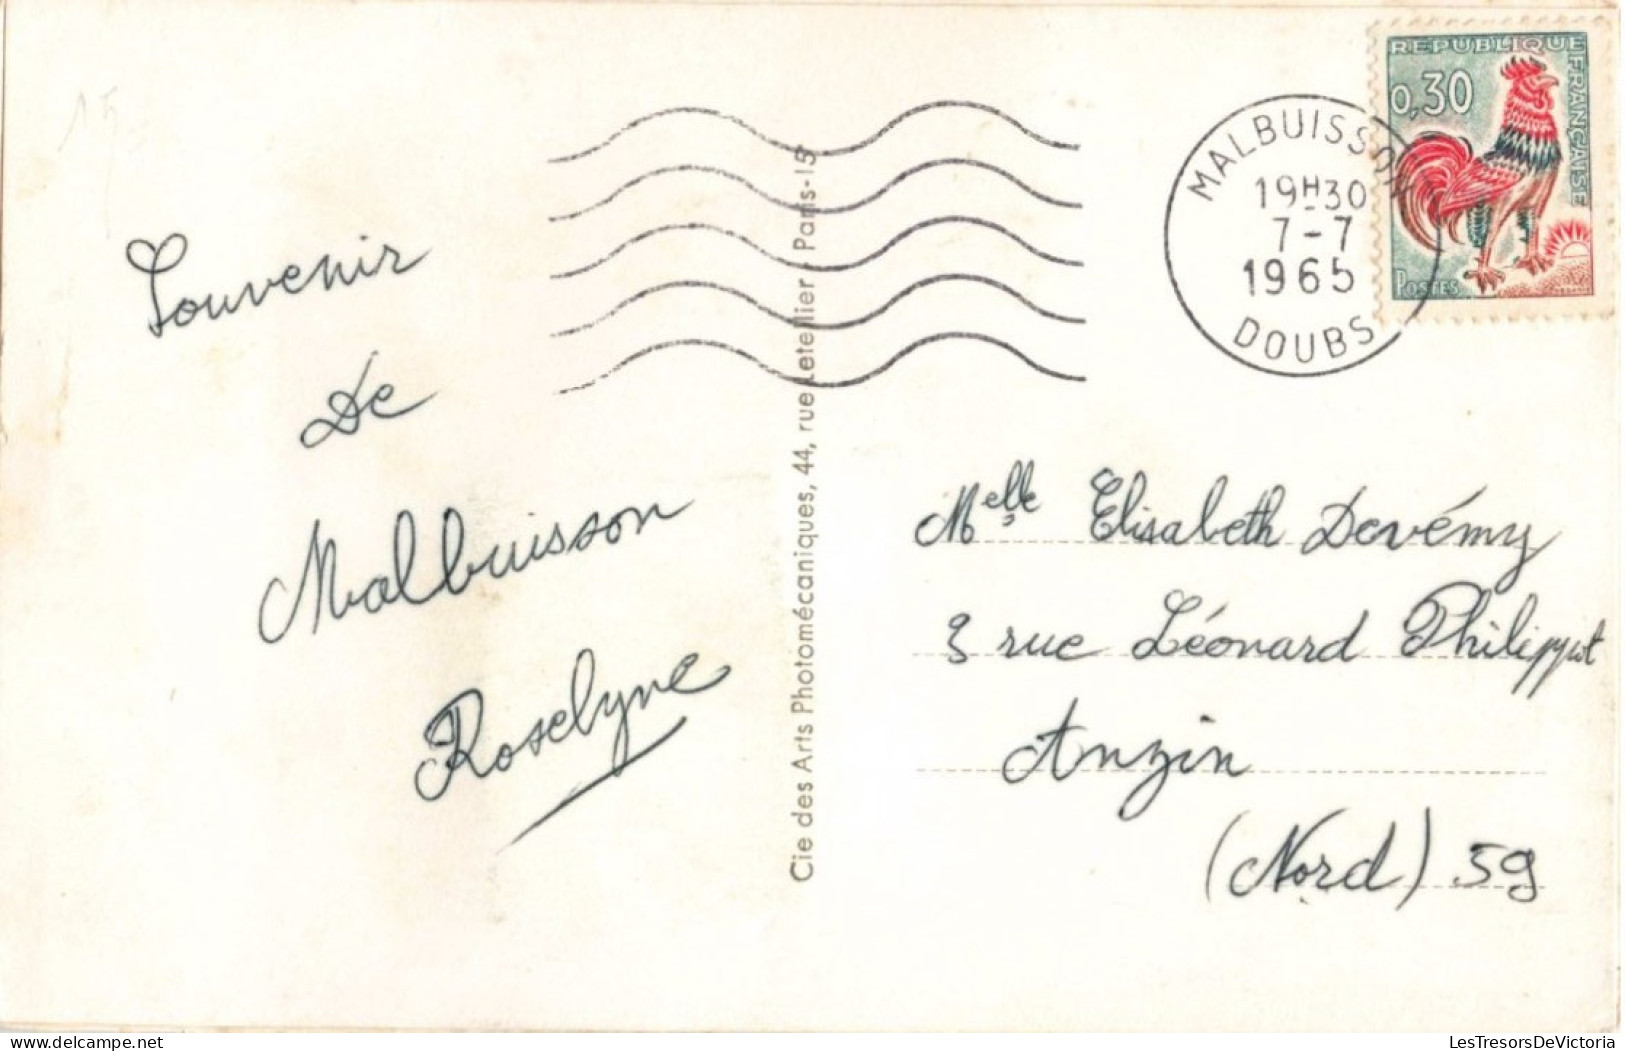 Souvenir
De
Malbuisson
Roselyne
Cie des Arts Photomécaniques, 44, rue Letellier, Paris-15
MALBUISSON
19H30
7-7
1965
DOUBS
REPUBLIQUE FRANÇAISE
0,30
POSTES
Melle Elisabeth Devémy
3 rue Léonard Philippot
Anzin
(Nord) 59
www.delcampe.net
LesTresorsDeVictoria